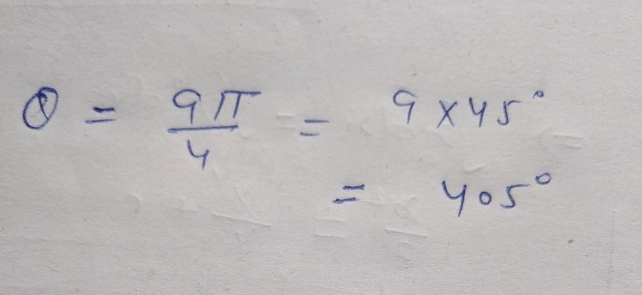 θ = 9π/4 = 9 × 45°
= 405°